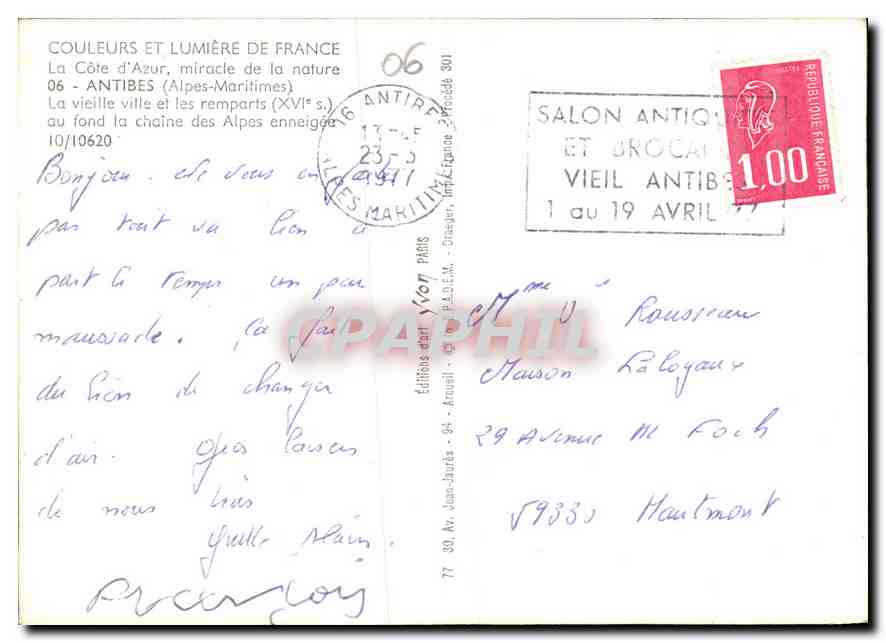 COULEURS ET LUMIÈRE DE FRANCE
La Côte d'Azur, miracle de la nature
06 - ANTIBES (Alpes-Maritimes)
La vieille ville et les remparts (XVIe s.)
au fond la chaîne des Alpes enneigée
10/10620
06
16 ANTIBES
13-45
23-3
1977
ALPES MARITIMES
SALON ANTIQU
ET BROCAN
VIEIL ANTIBES
1 au 19 AVRIL 77
POSTES
REPUBLIQUE FRANÇAISE
1,00
Bonjour. de vous
pas tout va bien à
part le temps un peu
maussade. ça fait
du bien de changer
d'air. Gros baisers
de nous trois
Alain.
François
Éditions d'art YVON PARIS
77 30, Av. Jean-Jaurès - 94 - Arcueil - P.A.D.E.M. - Draeger, Imp. France - Procédé 301
Mme V Rousseau
Maison Laloyaux
29 Avenue M Foch
59330 Hautmont
CPAPHIL